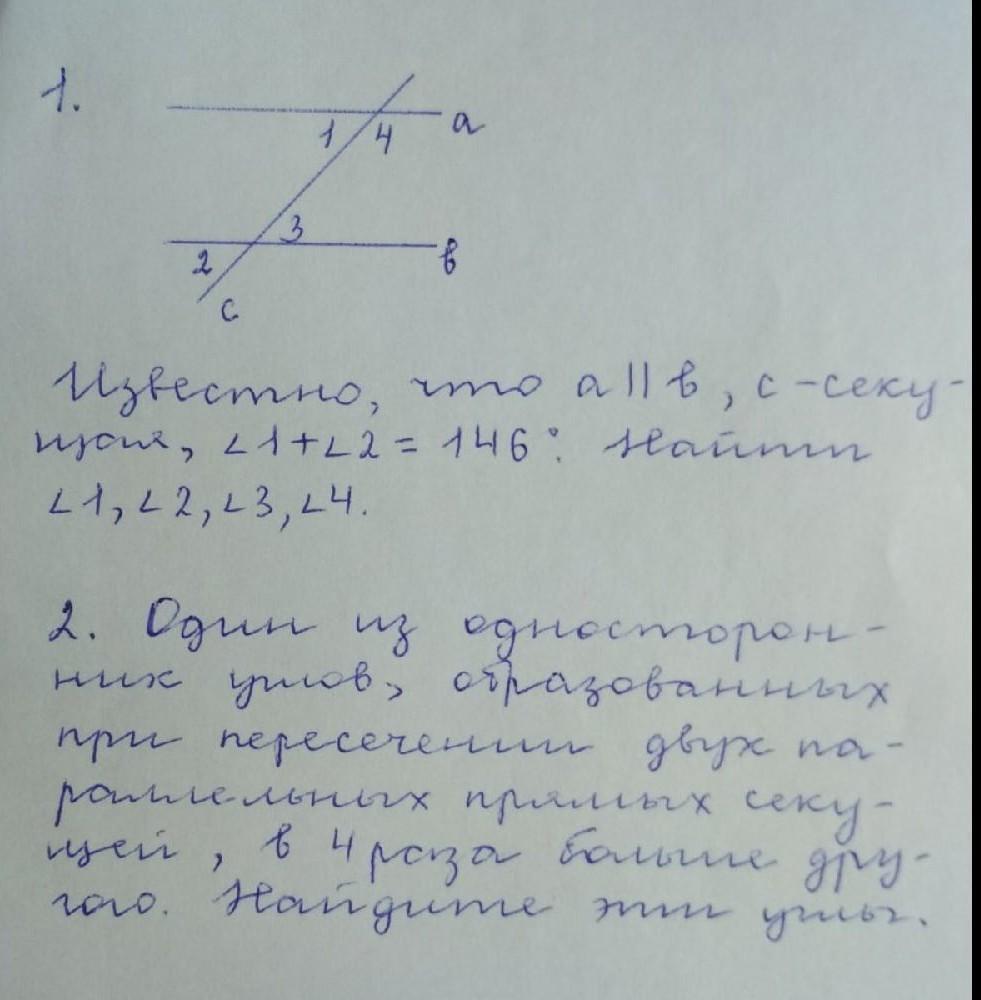 1.
a
1 4
3
2
в
c
Известно, что a || в, c - секу-
щая, ∠1+∠2 = 146°. Найти
∠1, ∠2, ∠3, ∠4.
2. Один из односторон-
них углов, образованных
при пересечении двух па-
раллельных прямых секу-
щей, в 4 раза больше дру-
гого. Найдите эти углы.